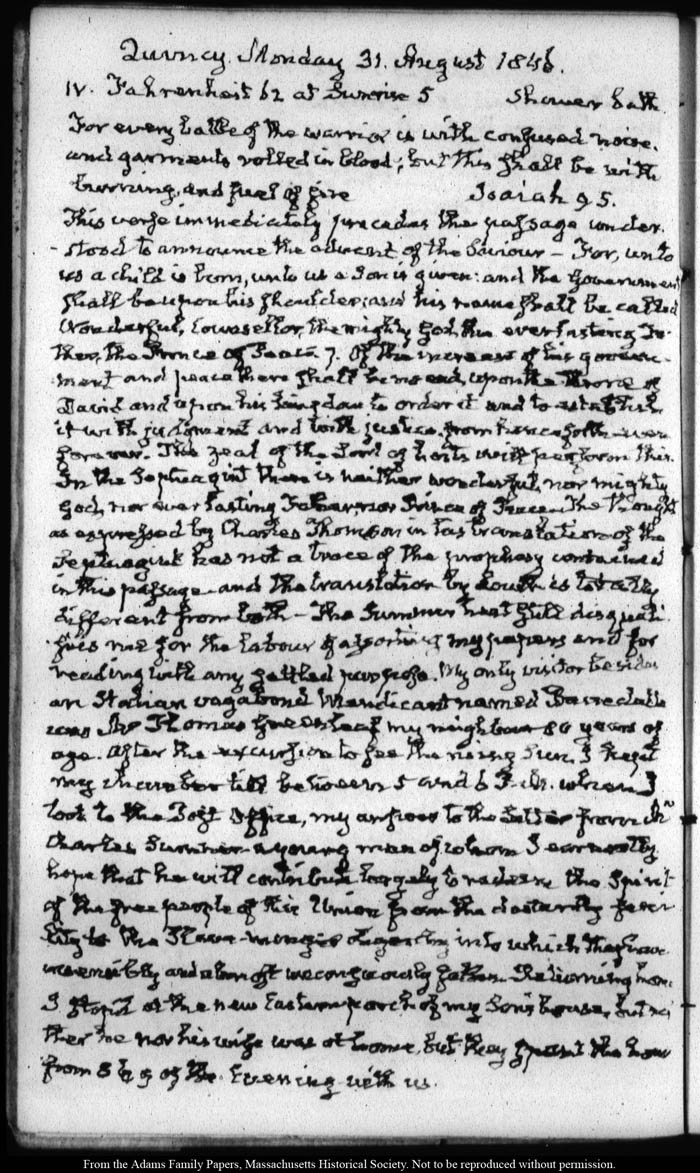 Quincy. Monday 31. August 1846.
IV. Fahrenheit 62 at Sunrise 5 Shower bath
For every battle of the warrior is with confused noise,
and garments rolled in blood; but this shall be with
burning, and fuel of fire Isaiah 9 5.
This verse immediately precedes the passage under-
-stood to announce the advent of the Saviour — For, unto
us a child is born, unto us a Son is given: and the Government
shall be upon his shoulder; and his name shall be called
Wonderful, Counsellor, the mighty God, the everlasting Fa-
ther, the Prince of Peace. 7. Of the increase of his govern-
ment and peace there shall be no end, upon the throne of
David and upon his kingdom to order it and to establish
it with judgment and with justice from henceforth even
forever. The zeal of the Lord of hosts will perform this.
In the Septuagint there is neither wonderful, nor mighty
God, nor everlasting Father, nor Prince of Peace. The thought
as expressed by Charles Thomson in his translation of the
Septuagint has not a trace of the prophecy contained
in this passage and the translation by Lowth is totally
different from both — The Summer heat still disquali-
fies me for the labour of assorting my papers and for
reading with any settled purpose. My only visitor besides
an Italian vagabond Mendicant named
was Mr Thomas Greenleaf my neighbour 80 years of
age. After the excursion to see the rising Sun, I kept
my chamber till between 5 and 6 P.M. when I
took to the Post Office, my answer to the Letter from Mr
Charles Sumner a young man of whom I earnestly
hope that he will contribute largely to redeem the Spirit
of the free people of this Union from the dastardly servi-
lity to the Slave-monger oligarchy into which they have
insensibly and almost unconsciously fallen. Returning home
I stop'd at the new Eastern porch of my Son's house, but nei-
ther he nor his wife was at home, but they spent the hour
from 8 to 9 of the Evening with us.
From the Adams Family Papers, Massachusetts Historical Society. Not to be reproduced without permission.